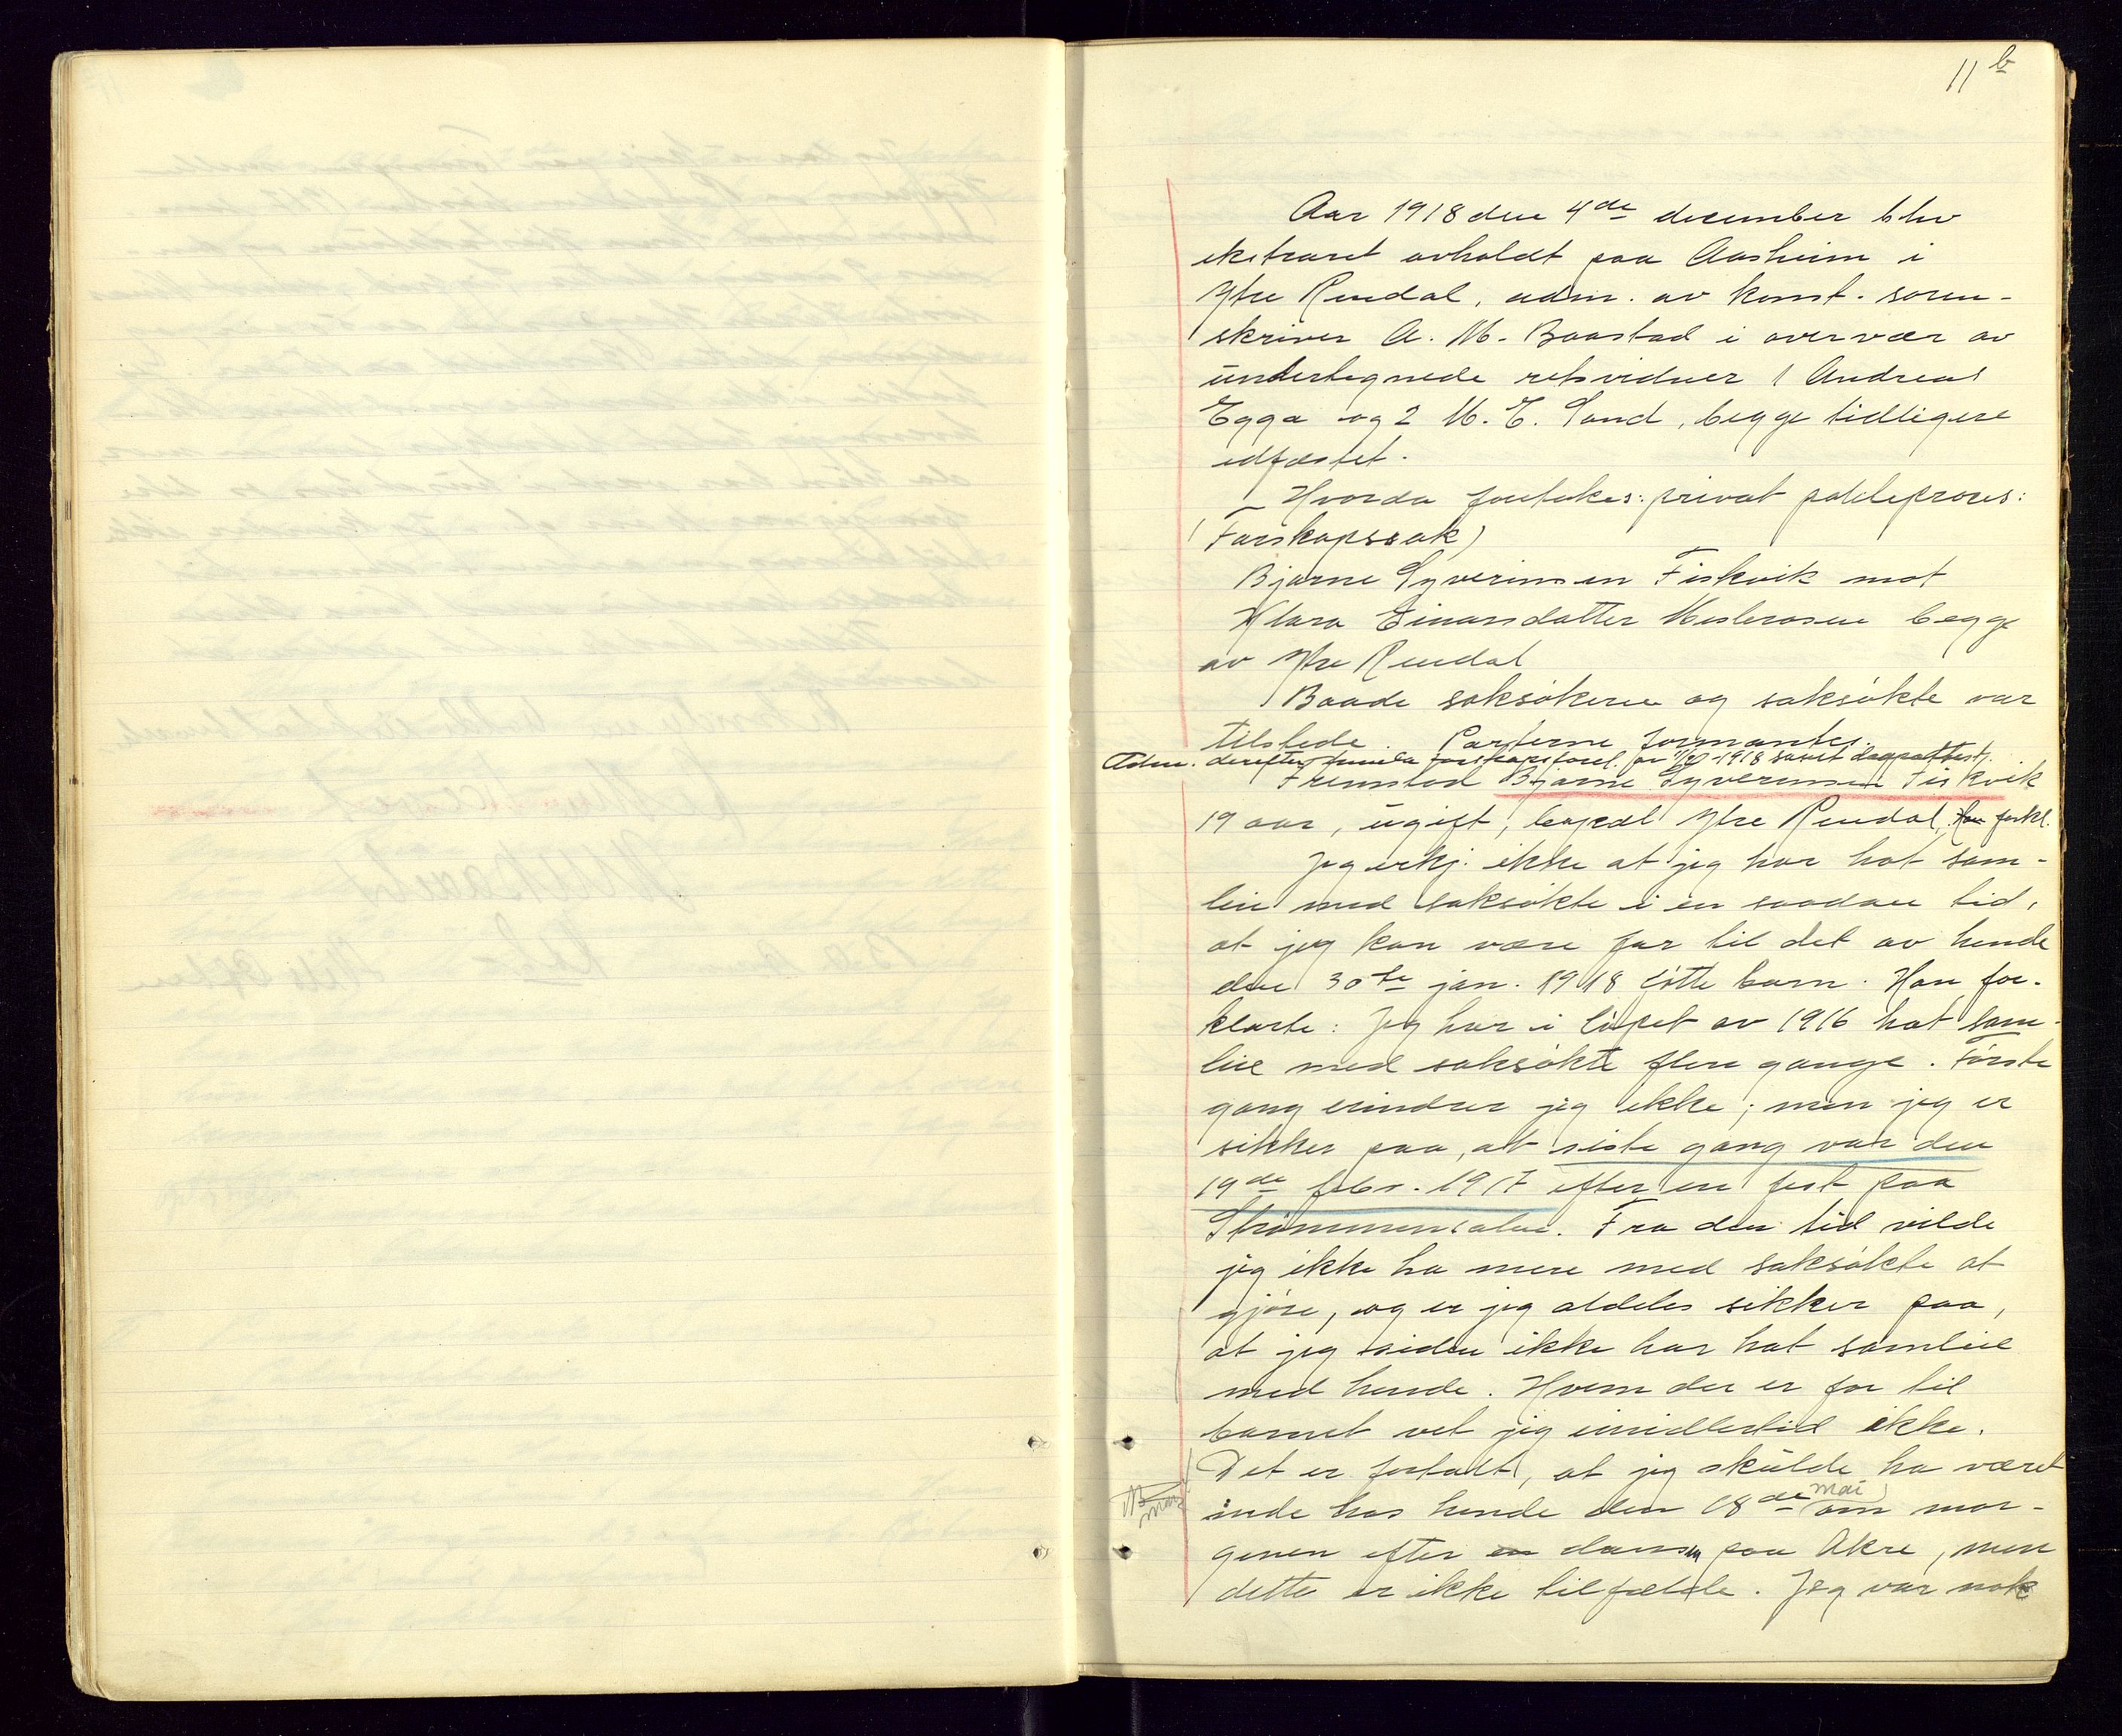 11 b
Aar 1918 den 4de december blev
ekstraret avholdt paa Aasheim i
Ytre Rendal, adm. av konst. soren-
skriver A. M. Baastad i overvær av
undertegnede retsvidner 1 Andreas
Egga og 2 M. E. Sand, begge tidligere
edfæstet.
Hvorda foretokes: privat politipros:
(Farskapssak)
Bjarne Syverinsen Fiskvik mot
Klara Einarsdatter Mesterosen begge
av Ytre Rendal
Baade saksøkeren og saksøkte var
tilstede. Parterne formantes.
Adm. derefter farskapsforel. av 11/10-1918 samt daapsattest.
Fremstod Bjarne Syverinsen Fiskvik
19 aar, ugift, bopæl Ytre Rendal. Han forkl.
Jeg erkj. ikke at jeg har hat sam-
leie med saksøkte i en saadan tid,
at jeg kan være far til det av hende
den 30te jan. 1918 føtte barn. Han for-
klarte: Jeg har i løpet av 1916 hat sam-
leie med saksøkte flere gange. Første
gang erindrer jeg ikke; men jeg er
sikker paa, at siste gang var den
19de febr. 1917 efter en fest paa
Strømmensalen. Fra den tid vilde
jeg ikke ha mere med saksøkte at
gjøre, og er jeg aldeles sikker paa,
at jeg siden ikke har hat samleie
med hende. Hvem der er far til
barnet vet jeg imidlertid ikke.
Det er fortalt, at jeg skulde ha været
inde hos hende den 18de mai om mor-
genen efter en dansen paa Akre, men
dette er ikke tilfælde. Jeg var nok